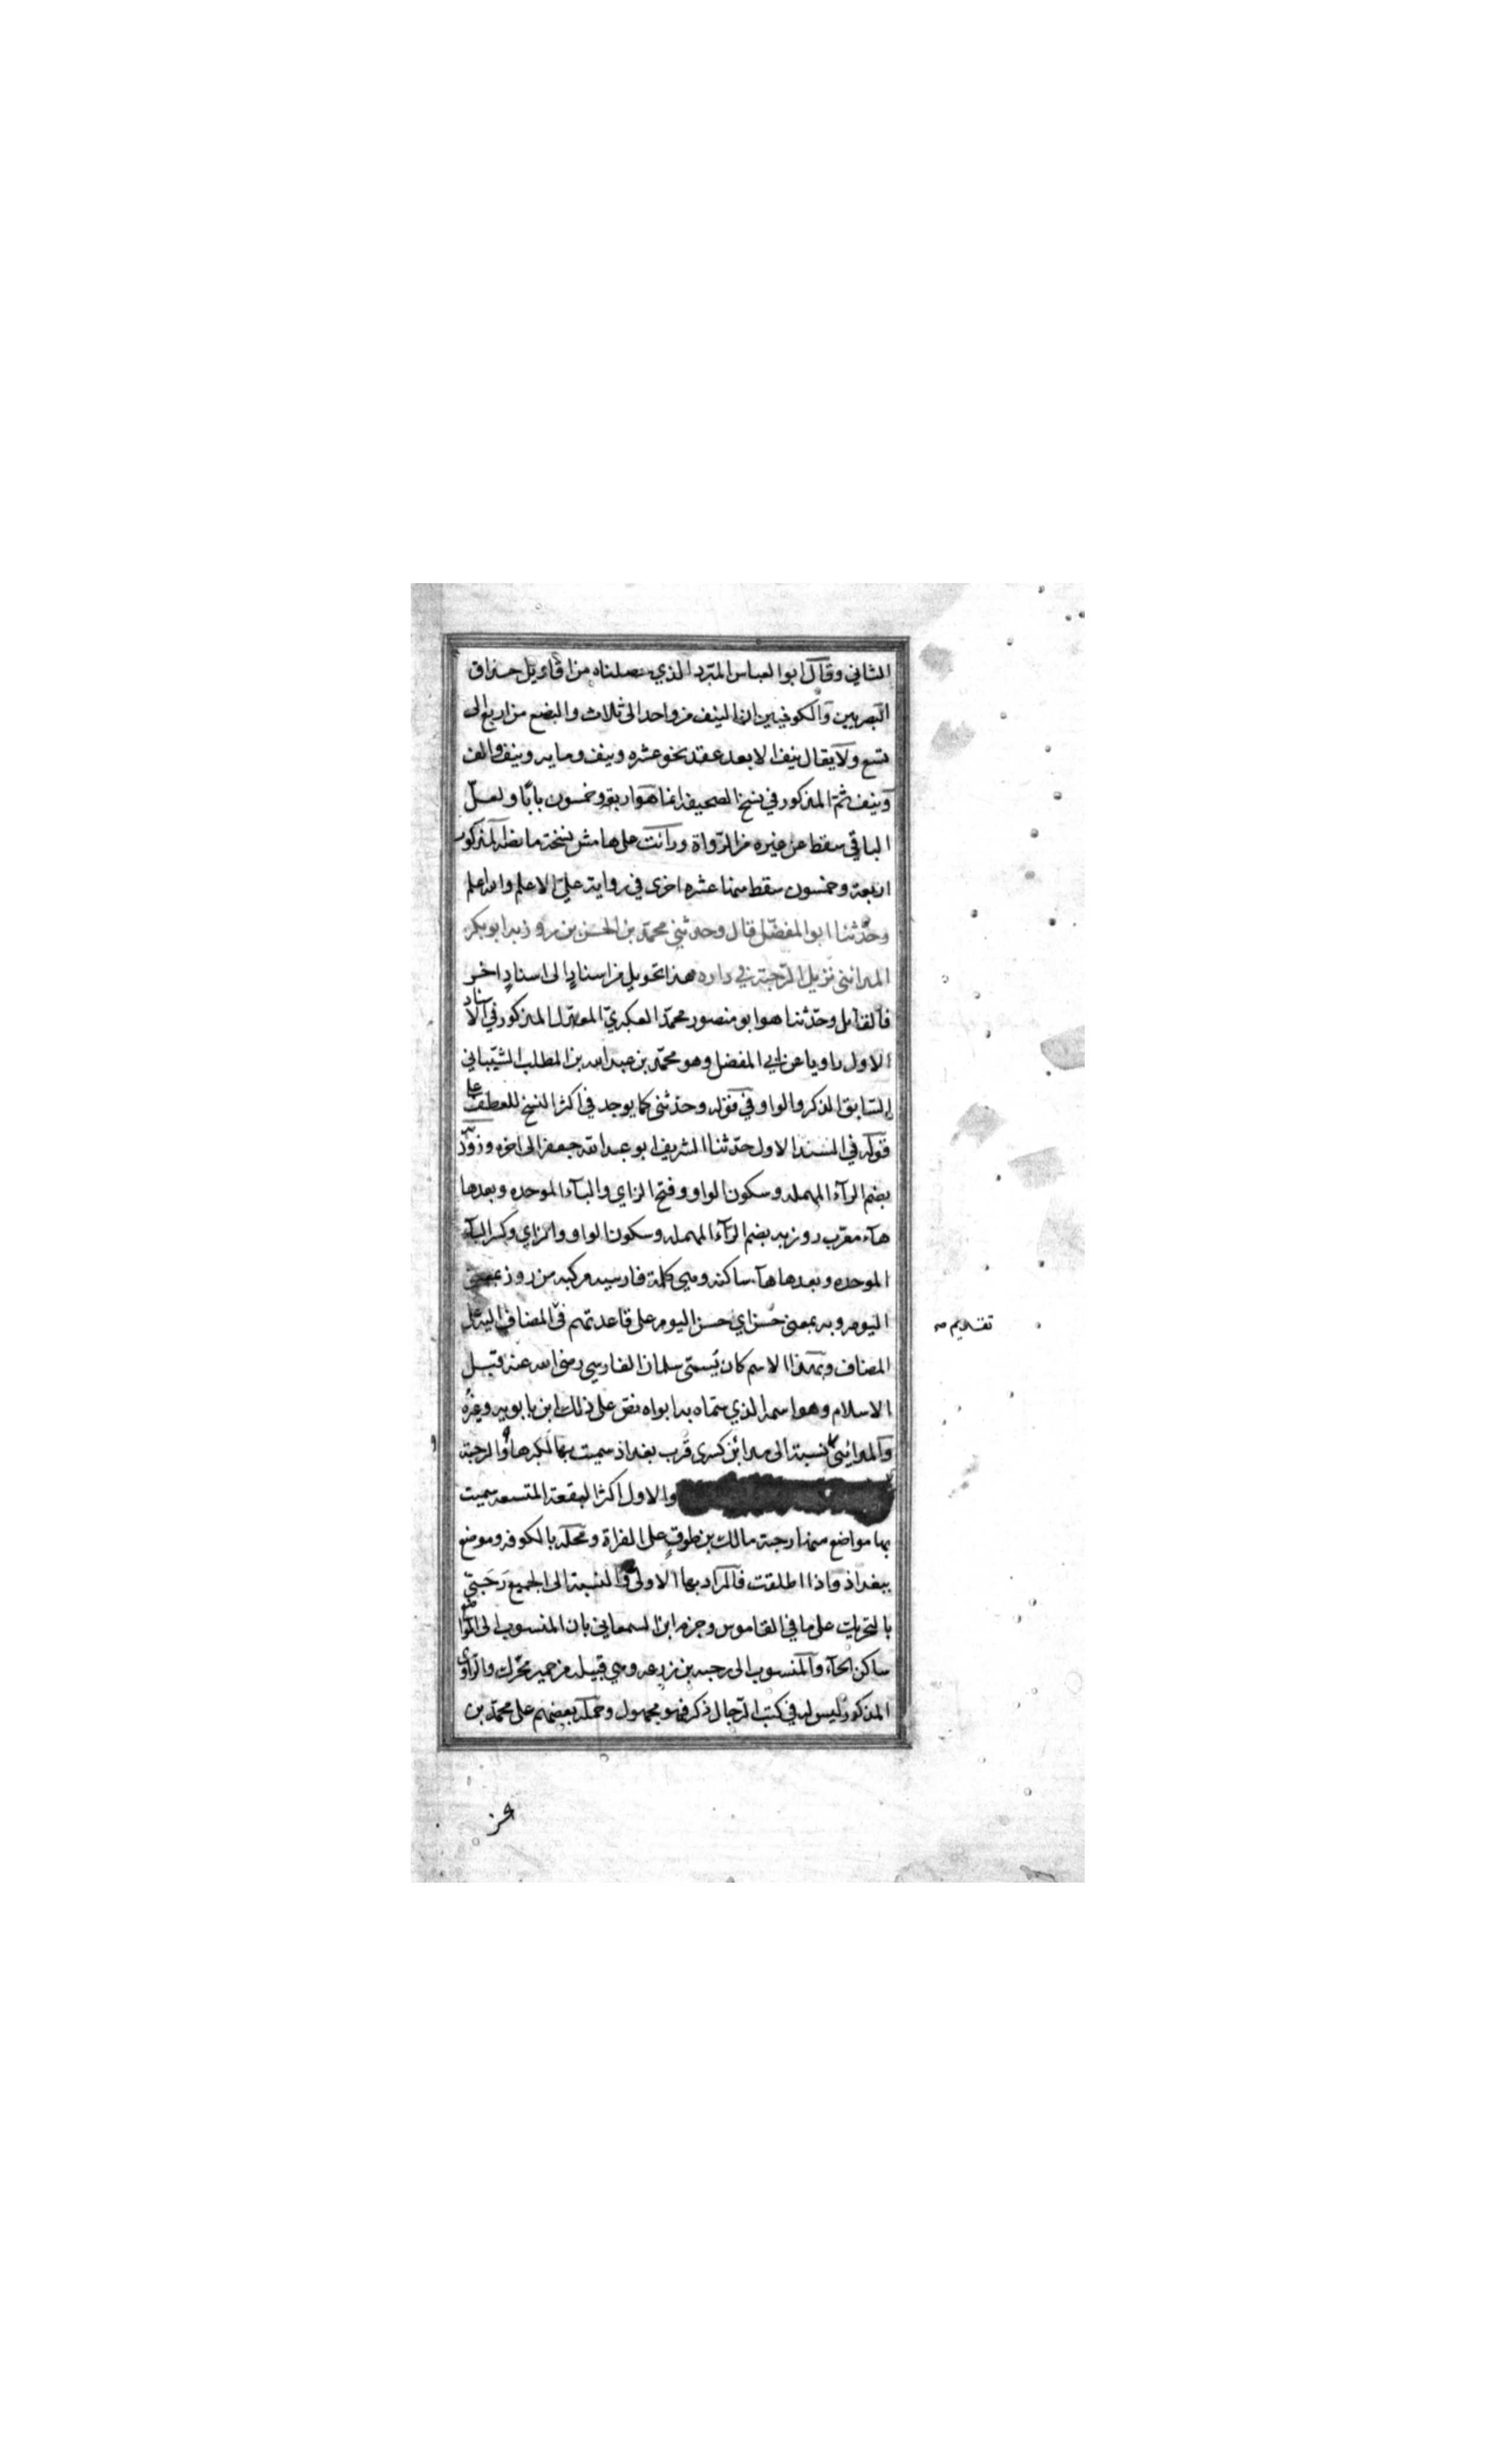 الثاني وقال ابو العباس المبرد الذي حصلناه من اقاويل حذاق
البصريين والكوفيين ان النيف من واحد الى ثلاث والبضع من اربع الى
تسع ولا يقال نيف الا بعد عقد نحو عشره ونيف ومايه ونيف والف
ونيف ثم المذكور في نسخ الصحيفه انما هو اربعة وخمسون بابًا ولعلّ
الباقي سقط عن غيره من الرّواة ورأيت على هامش نسخة ما نصه المذكور
اربعة وخمسون سقط منها عشره اخرى في رواية علي الاعلم والله اعلم
وحدّثنا ابو المفضّل قال وحدثني محمّد بن الحسن بن روزبه ابو بكر
المدائني نزيل الرّحبة في داره هذا تحويل من اسنادٍ الى اسنادٍ اخر
فالقائل وحدّثنا هو ابو منصور محمّد العكبريّ المعدّل المذكور في الاسناد
الاول راويا عن ابي المفضل وهو محمّد بن عبد الله بن المطلب الشّيباني
السّابق الذكر والواو في قوله وحدّثني كما يوجد في اكثر النسخ للعطف على
قوله في السند الاول حدّثنا الشريف ابو عبد الله جعفر الى اخره وروزبه
بضم الرآء المهمله وسكون الواو وفتح الزاي والبآء الموحده وبعدها
هآء معرّب روزبه بضم الرّآء المهمله وسكون الواو والزاي وكسر البآء
الموحده وبعدها هآء ساكنه وهي كلمة فارسيه مركبه من روز بمعنى
اليوم وبه بمعنى حسن اي حسن اليوم على قاعدتهم في المضاف اليه على
تقديم صه
المضاف وبهذا الاسم كان يُسمّى سلمان الفارسي رضى الله عنه قبل
الاسلام وهو اسمه الذي سمّاه به ابواه نصّ على ذلك ابن بابويه وغيره
والمدائني نسبة الى مدائن كسرى قرب بغداذ سميت بها لكبرها والرحبة
والاول اكثر البقعة المتسعه سميت
بها مواضع منها رحبة مالك بن طوقٍ على الفراة ومحله بالكوفه وموضع
ببغداذ واذا اطلقت فالمراد بها الاولى والنسبة الى الجميع رَحَبيّ
بالتحريك على ما في القاموس وجزم ابن السمعاني بان المنسوب الى المواضع
ساكن الحآء والمنسوب الى رحبه بن زرعه وهي قبيله من حمير محرّك والراوي
المذكور ليس له في كتب الرّجال ذكر فهو مجهول وحمله بعضهم على محمّد بن